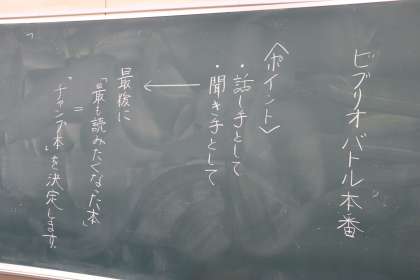 ビブリオバトル本番
〈ポイント〉
・話し手として
・聞き手として
最後に
「最も読みたくなった本」
=
"チャンプ本"を決定します。